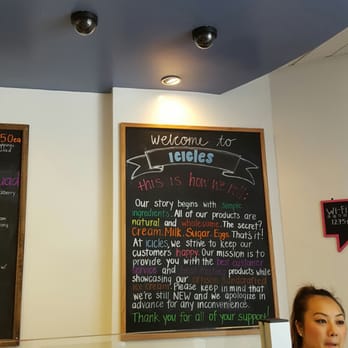 welcome to
ICICLES
this is how we roll:
Our story begins with simple
ingredients. All of our products are
natural and wholesome. The secret?
Cream. Milk. Sugar. Eggs. That's it!
At icicles, we strive to keep our
customers happy. Our mission is to
provide you with the best customer
service and products while
showcasing our
ice cream. Please keep in mind that
we're still NEW and we apologize in
advance for any inconvenience.
Thank you for all of your support!
50ea
Wi-fi